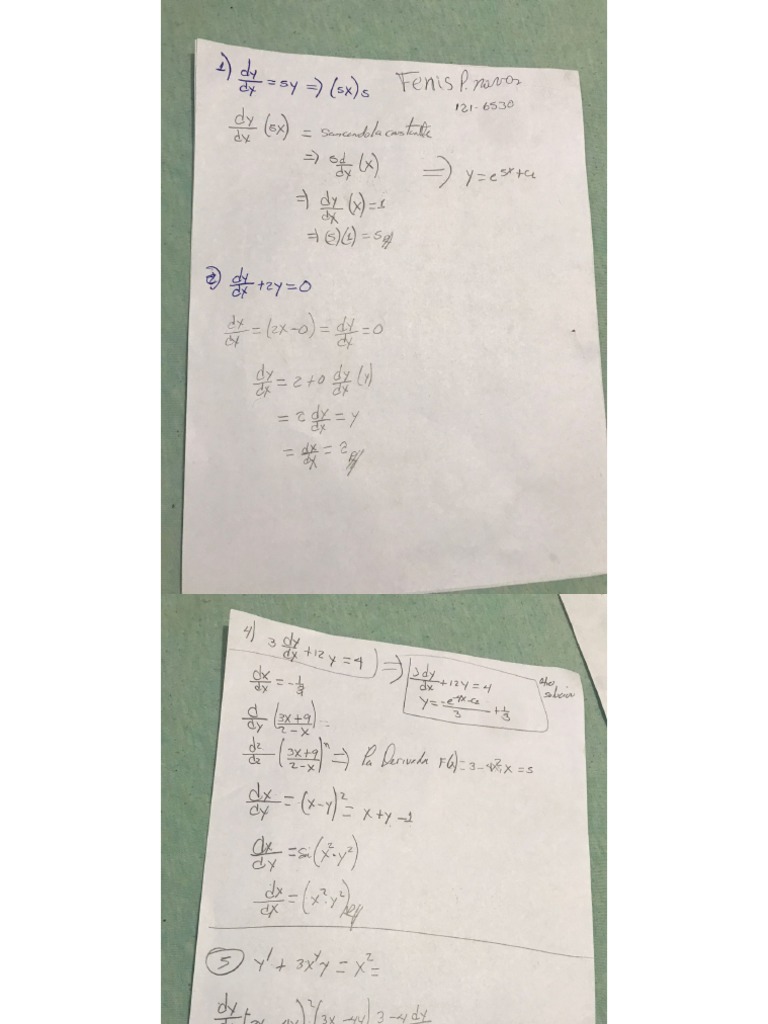 1) dy/dx = 5y => (5x)5
Fenis P.
121-6530
dy/dx (5x) =
=> 5d/dx (x)
=> y = e^5x+c₁
=> dy/dx (x) = 1
=> (5)(1) = 5
2) dy/dx + 2y = 0
dx/dx = (2x-0) = dy/dx = 0
dy/dx = 2+0 dy/dx (y)
= 2 dy/dx = y
= dx/dx = 2
4) 3 dy/dx + 12y = 4 => 3dy/dx + 12y = 4
y = -e^-4x-c₂/3 + 1/3
solucion
dx/dx = -1/3
d/dy (3x+9/2-x) =
d2/d2 (3x+9/2-x)^n => Pa Derivada F(x) = 3-4x²·x = 5
dx/dy = (x-y)² = x+y-1
dx/dy = si(x²·y²)
dx/dx = (x²·y²)
5 y' + 3x^y y = x² =
(3x-4y) 3-4 dy